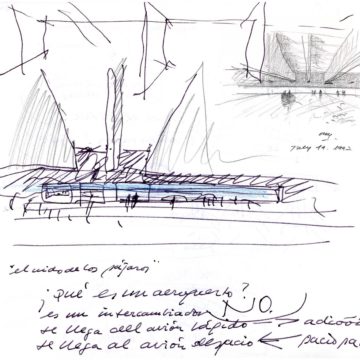 July 19. 1992
"el nido de los pájaros"
¿Qué es un aeropuerto?
es un intercambiador NO.
se llega del avión rápido
se llega al avión despacio